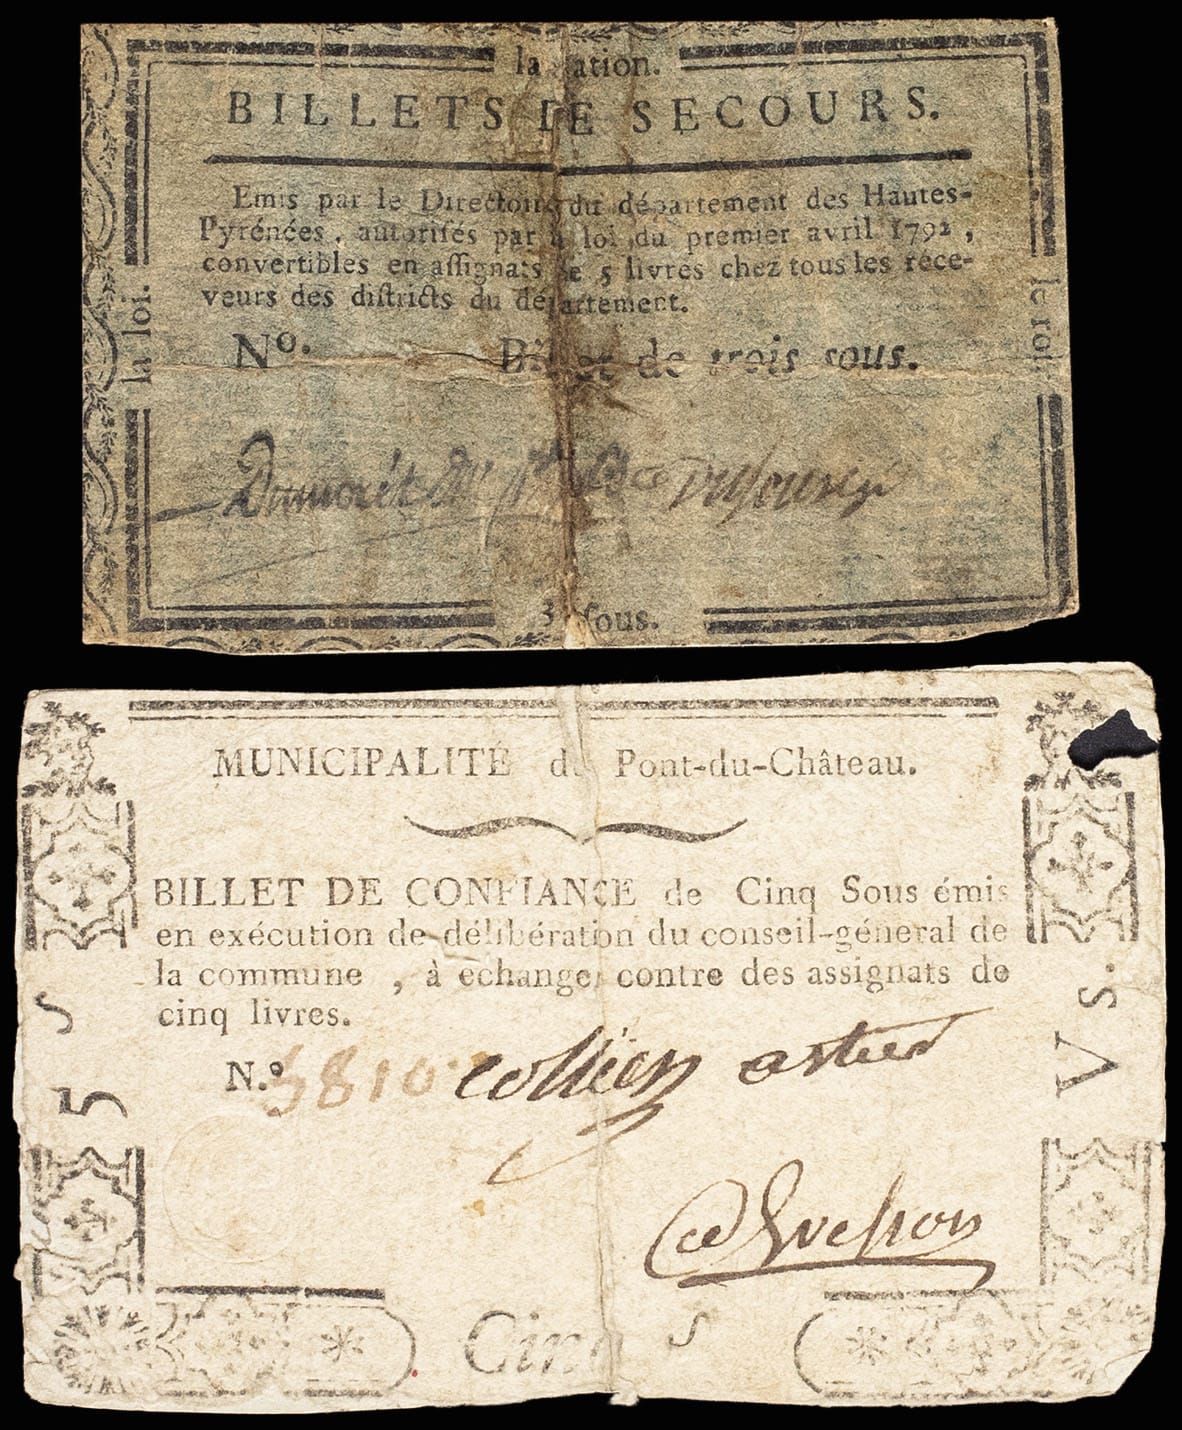 la nation.
BILLETS DE SECOURS.
Emis par le Directoire du département des Hautes-
Pyrénées, autorisés par la loi du premier avril 1792,
convertibles en assignats de 5 livres chez tous les rece-
veurs des districts du département.
No. Billet de trois sous.
la loi.
le roi
3 sous.
MUNICIPALITÉ du Pont-du-Château.
BILLET DE CONFIANCE de Cinq Sous émis
en exécution de délibération du conseil-géneral de
la commune , à echanger contre des assignats de
cinq livres.
N.o 5810 collien astier
5 S
V s.
Cinq S